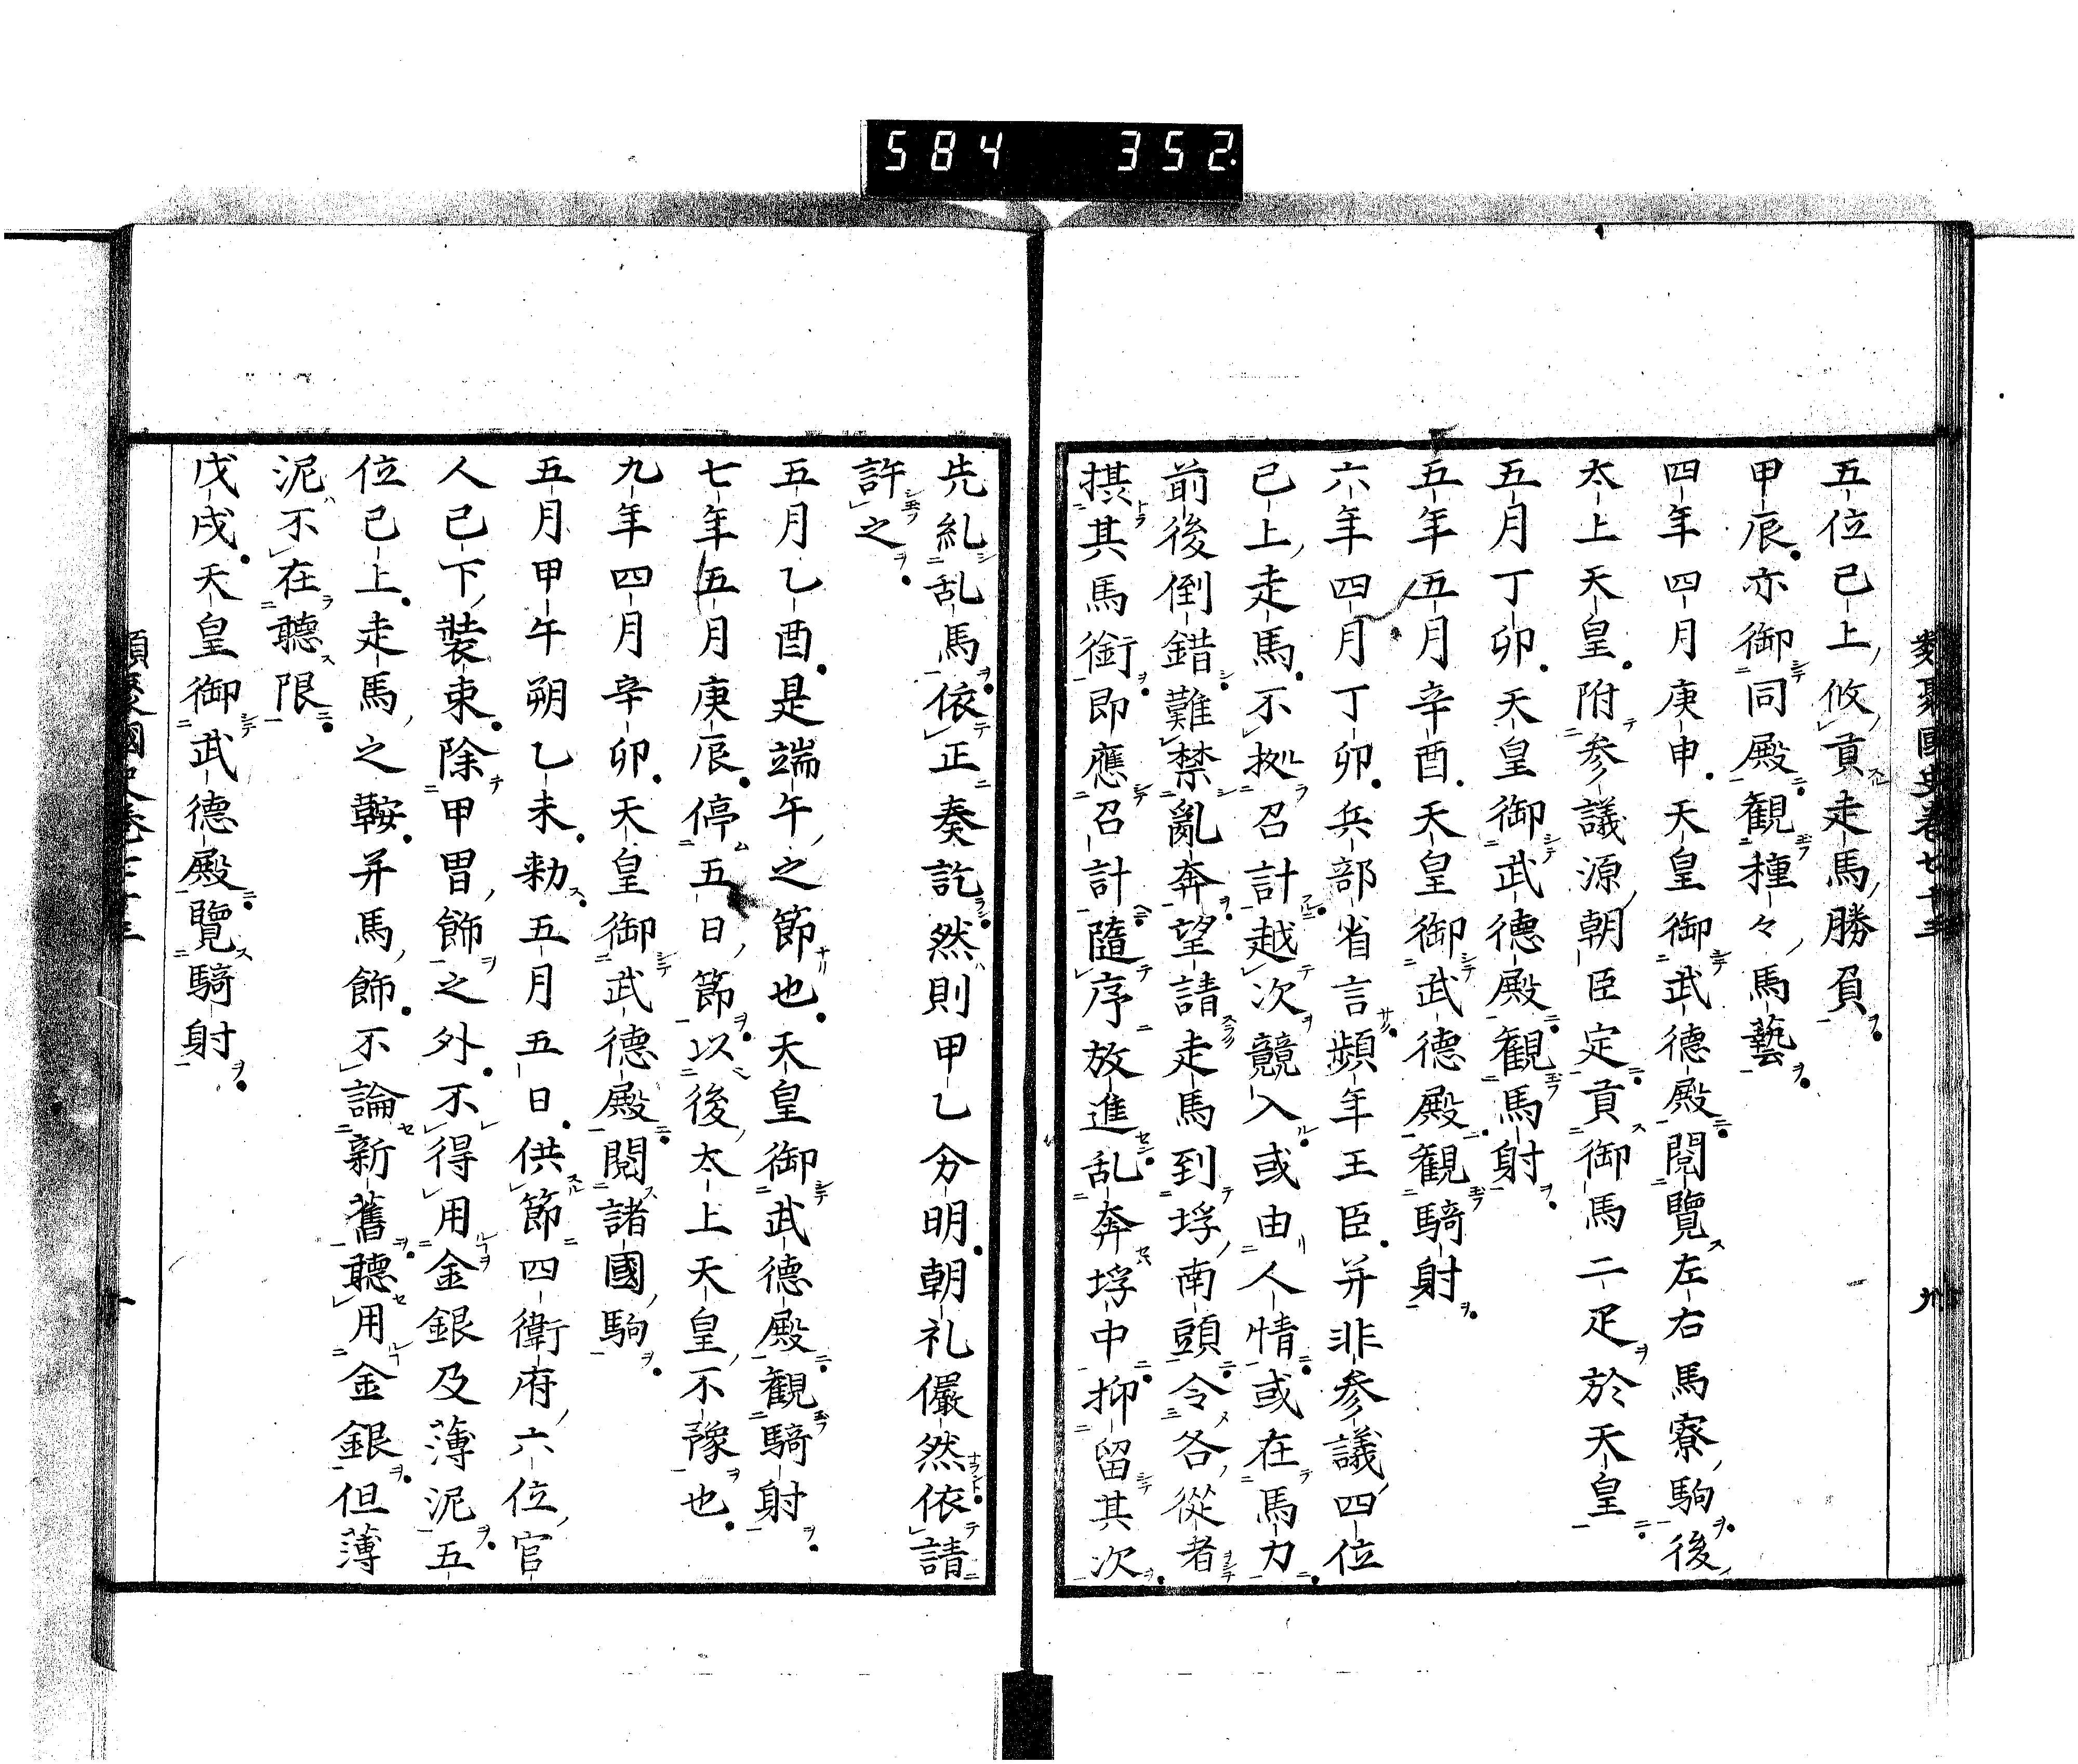 584 352
類聚國史卷七十三 九
五位已上攸貢走馬勝負
甲辰亦御同殿観種々馬藝
四年四月庚申天皇御武德殿閲覽左右馬寮駒後
太上天皇附参議源朝臣定貢御馬二疋於天皇
五月丁卯天皇御武德殿観馬射
五年五月辛酉天皇御武德殿観騎射
六年四月丁卯兵部省言頻年王臣并非参議四位
已上走馬不拠召計越次競入或由人情或在馬力
前後倒錯難禁亂奔望請走馬到埒南頭令各從者
摂其馬銜即應召計隨序放進乱奔埒中抑留其次
先糺乱馬依正奏訖然則甲乙分明朝礼儼然依請
許之
五月乙酉是端午之節也天皇御武德殿観騎射
七年五月庚辰停五日節以後太上天皇不豫也
九年四月辛卯天皇御武德殿閲諸國駒
五月甲午朔乙未勅五月五日供節四衛府六位官
人已下裝束除甲冑飾之外不得用金銀及薄泥五
位已上走馬之鞍并馬飾不論新舊聽用金銀但薄
泥不在聽限
戊戌天皇御武德殿覽騎射
類聚國史卷七十三 十